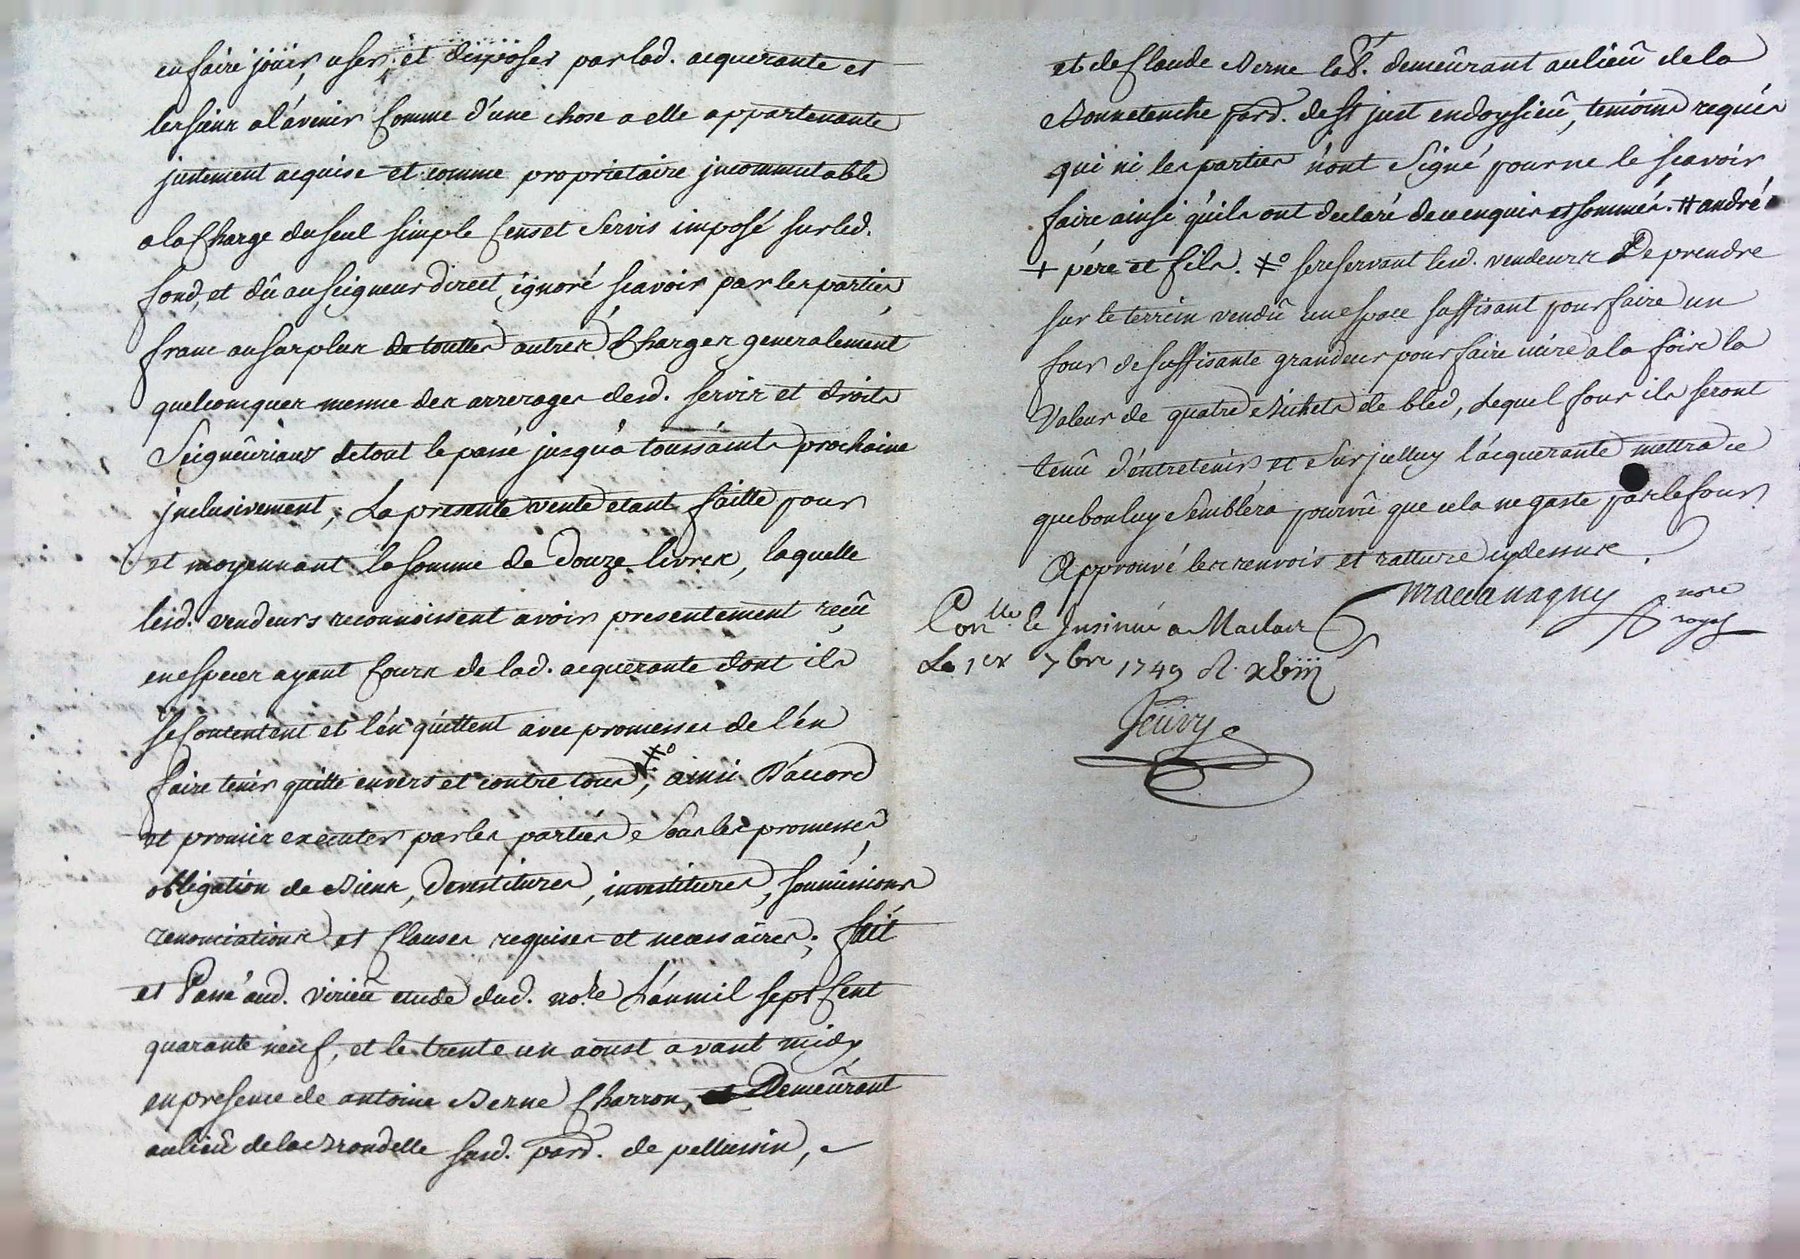 en faire jouir, user, et disposer par lad. acquerante et
les sienx a l'avenir Comme d'une chose a elle appartenante
justement acquise et comme proprietaire jncommutable
a la Charge du seul simple Cens et Servis imposé sur led.
fond, et dû au seigneur direct, ignoré scavoir par les parties,
franc au surplux de touttes autres Charges generalement
quelconques mesme des arrerages desd. servix et droits
Seigneûriaux de tout le passé jusqu'a toussaints prochaine
jnclusivement, La presente vente etant faitte pour
et moyennant la somme de Douze livres, laquelle
lesd. vendeurs reconnoissent avoir presentement reçû
en especes ayant Cours de lad. acquerante dont ils
se Contentent et l'en quittent avec promesses de l'en
faire tenir quitte envers et contre tous #°, ainsi D'accord
et promix executer par les parties e Sous les promesses
obligation de Biens, devestitures, investitures, soumissions
renonciations et Clauses requises et necessaires; fait
et Passé aud. virieû etude dud. no.re L'an mil sept Cent
quarante neuf, et le trente un aoust avant midy
en presence de antoine Berne Charron, et Demeûrant
au lieû de la Brondelle susd. parr. de pellussin,
et de Claude Berne lab.r demeûrant au lieû de la
Bonnetenche parr. de St just en doysieû, temoins requis
qui ni les parties n'ont Signé pour ne le scavoir
faire ainsi qu'ils ont declaré de ce enquis et sommés. # andré
+ pére et fils. #° se reservant lesd. vendeurs De prendre
sur le terrein vendû un espace suffisant pour faire un
four de suffisante grandeur pour faire cuire a la foix la
Valeur de quatre Bichets de bled, Lequel four ils seront
tenû d'entretenir et Sur jcelluy l'acquerante mettra ce
que bon luy Semblera pourvû que cela ne gaste pas le four.
Approuvé les renvois et ratture cy dessus
nore
royal
Con.lle & Jnsinué a Maclas
Le 1er 7bre 1749 R. xbiii